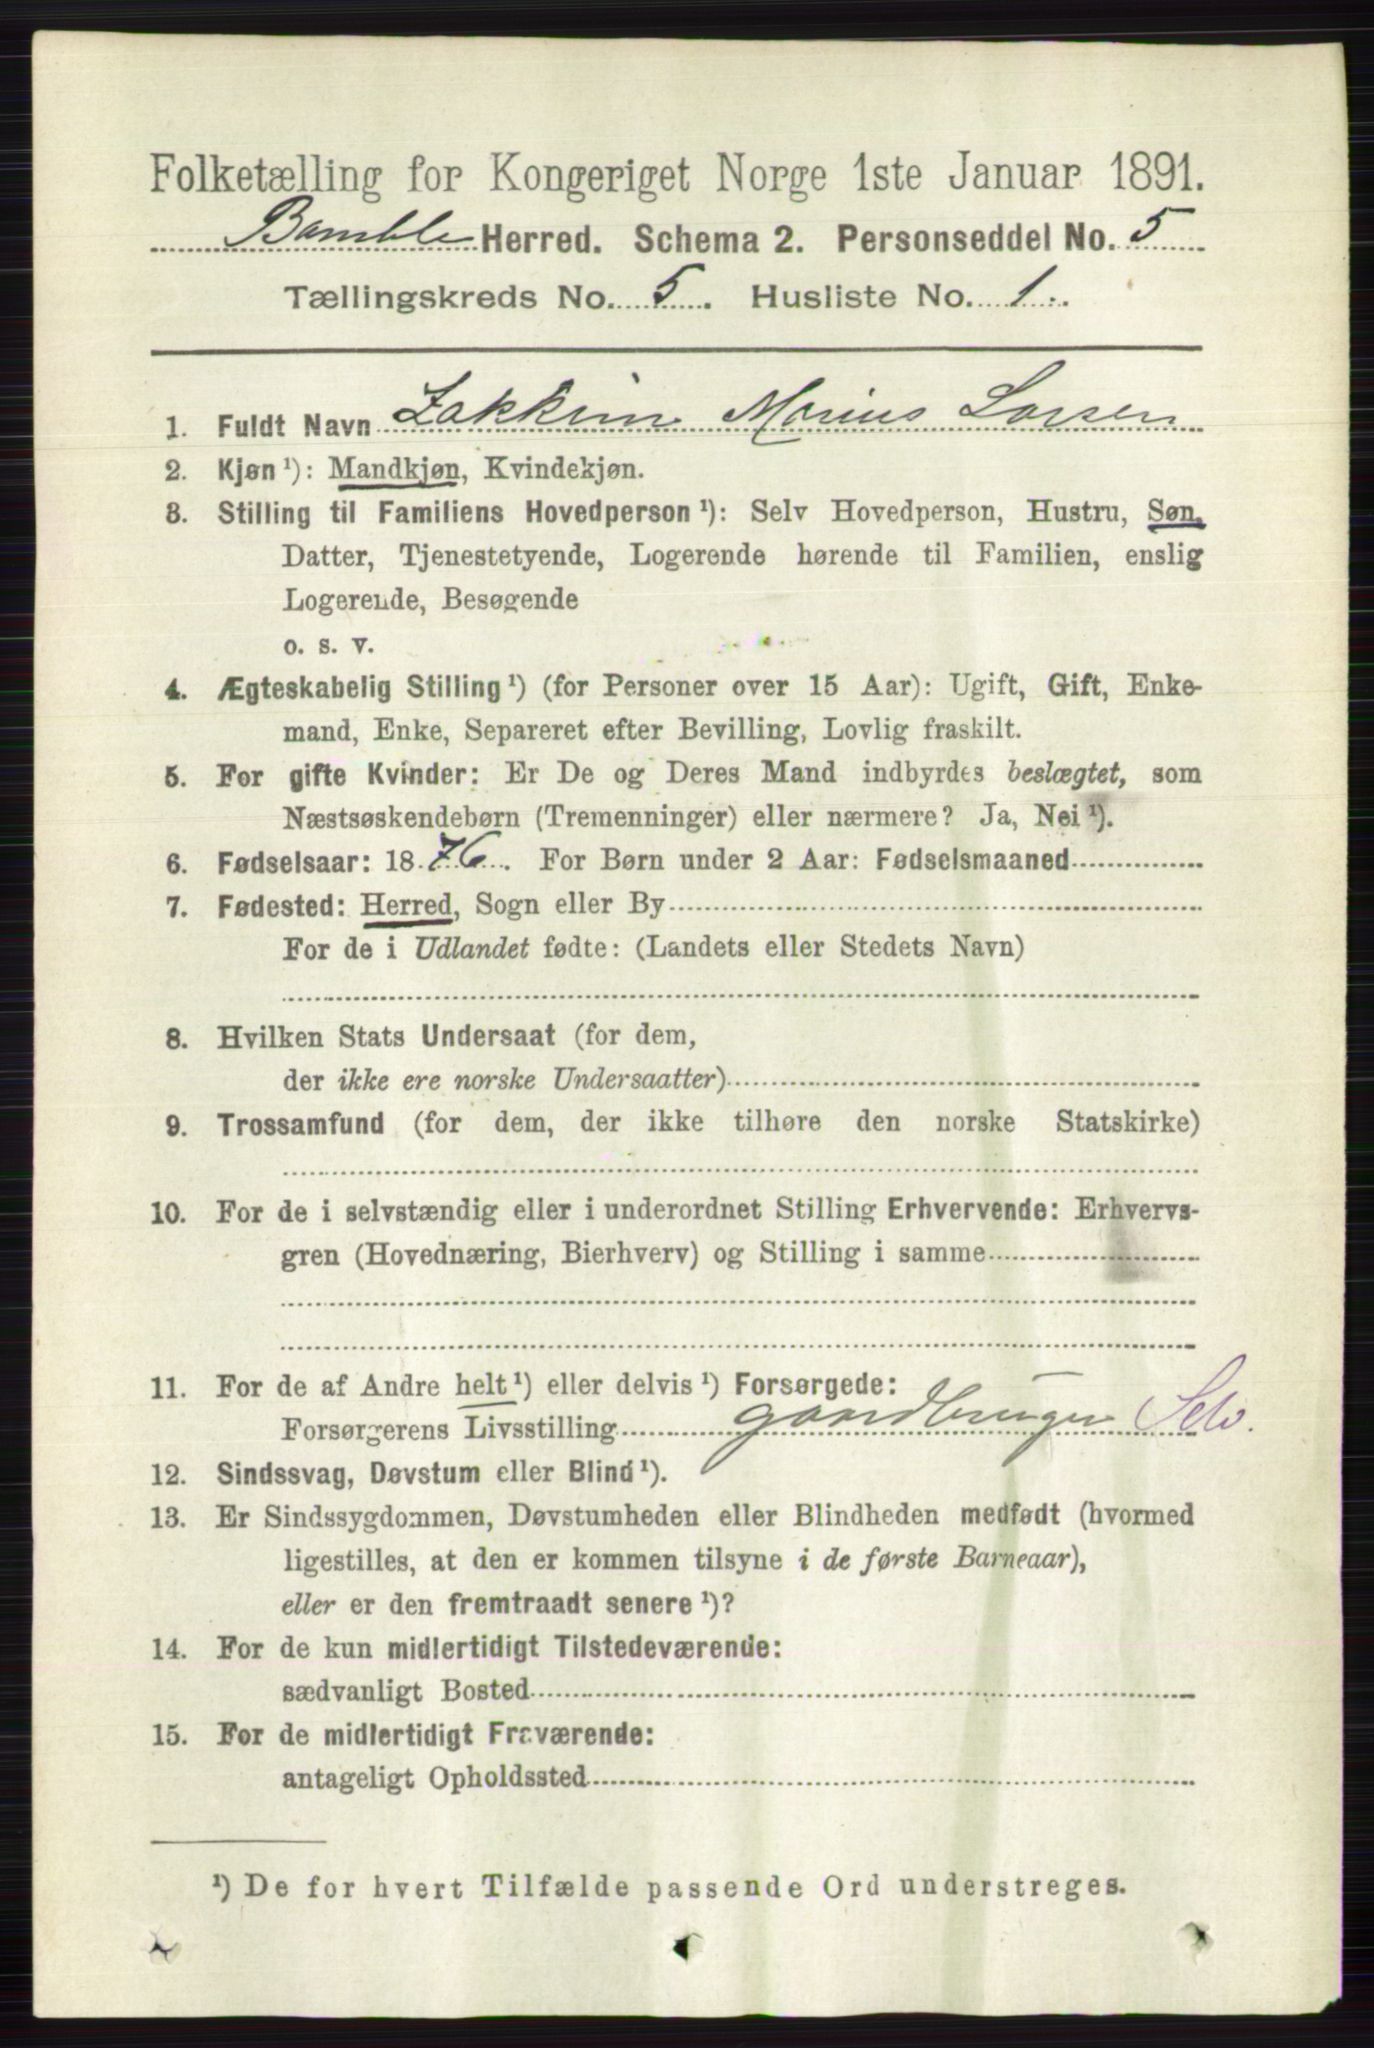 Folketælling for Kongeriget Norge 1ste Januar 1891.
Bamble Herred. Schema 2. Personseddel No. 5
Tællingskreds No. 5. Husliste No. 1.
1. Fuldt Navn Zakkim Marius Larsen
2. Kjøn ¹): Mandkjøn, Kvindekjøn.
3. Stilling til Familiens Hovedperson ¹): Selv Hovedperson, Hustru, Søn,
Datter, Tjenestetyende, Logerende hørende til Familien, enslig
Logerende, Besøgende
o. s. v.
4. Ægteskabelig Stilling ¹) (for Personer over 15 Aar): Ugift, Gift, Enke-
mand, Enke, Separeret efter Bevilling, Lovlig fraskilt.
5. For gifte Kvinder: Er De og Deres Mand indbyrdes beslægtet, som
Næstsøskendebørn (Tremenninger) eller nærmere? Ja, Nei ¹).
6. Fødselsaar: 1876. For Børn under 2 Aar: Fødselsmaaned
7. Fødested: Herred, Sogn eller By
For de i Udlandet fødte: (Landets eller Stedets Navn)
8. Hvilken Stats Undersaat (for dem,
der ikke ere norske Undersaatter)
9. Trossamfund (for dem, der ikke tilhøre den norske Statskirke)
10. For de i selvstændig eller i underordnet Stilling Erhvervende: Erhvervs-
gren (Hovednæring, Bierhverv) og Stilling i samme
11. For de af Andre helt ¹) eller delvis ¹) Forsørgede:
Forsørgerens Livsstilling gaardbruger Selv.
12. Sindssvag, Døvstum eller Blind ¹).
13. Er Sindssygdommen, Døvstumheden eller Blindheden medfødt (hvormed
ligestilles, at den er kommen tilsyne i de første Barneaar),
eller er den fremtraadt senere ¹)?
14. For de kun midlertidigt Tilstedeværende:
sædvanligt Bosted
15. For de midlertidigt Fraværende:
antageligt Opholdssted
¹) De for hvert Tilfælde passende Ord understreges.